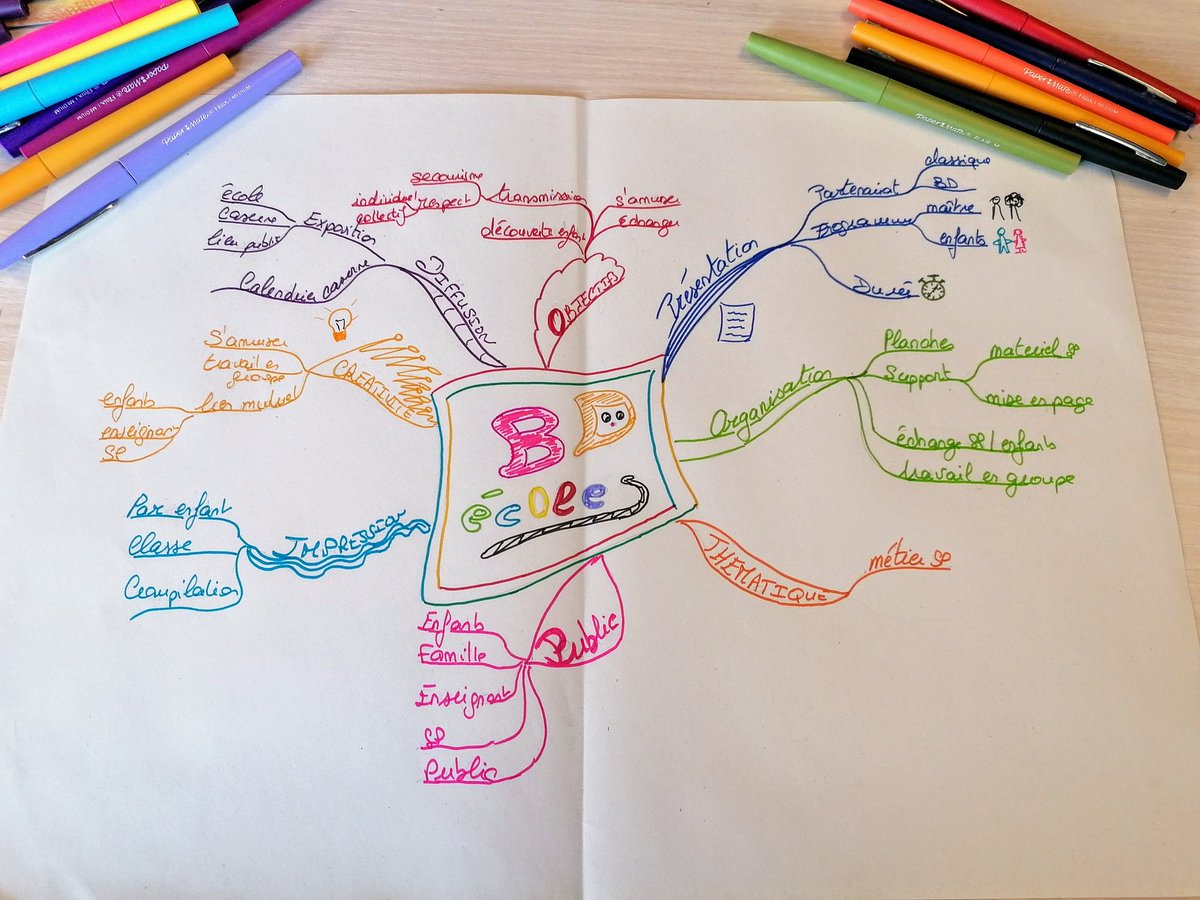 BD
écoles
OBJECTIFS
transmission
secourisme
respect
individuel
collectif
découverte enfant
s'amuser
échanger
Présentation
Partenariat
classique
BD
Programme
maître
enfants
Durée
Organisation
Planches
Support
materiel SP
mise en page
échange SP/enfants
travail en groupe
THÉMATIQUE
métier SP
Public
Enfants
Famille
Enseignant
SP
Public
IMPRESSION
Par enfant
Classe
Compilation
CRÉATIVITÉ
S'amuser
travail en
groupe
lien mutuel
enfants
enseignant
SP
DIFFUSION
Exposition
école
caserne
lieu public
Calendrier caserne
Paper Mate
Paper Mate
Paper Mate
Paper Mate